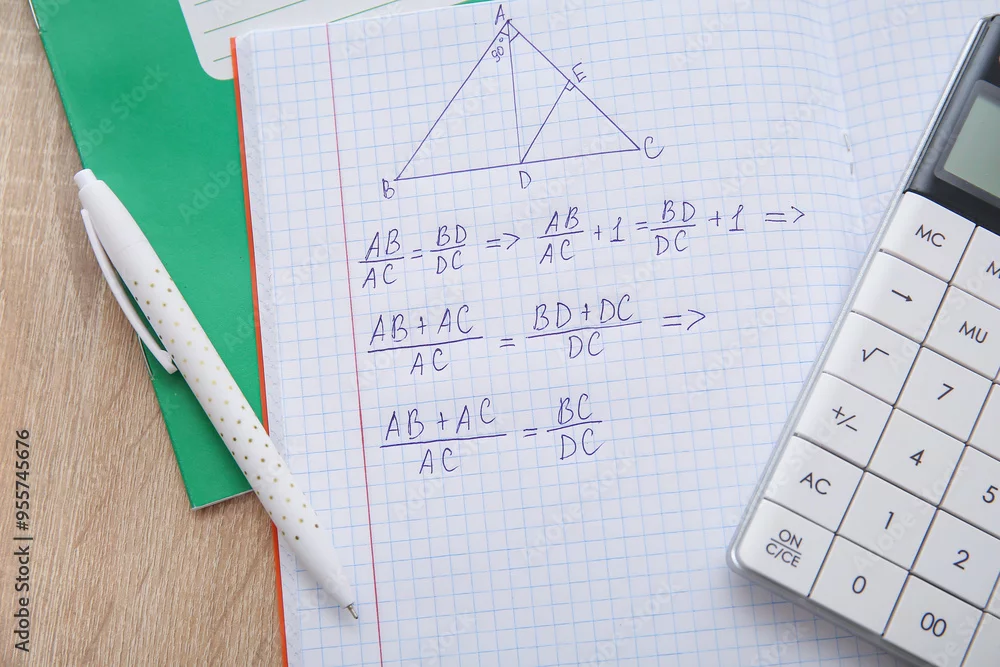 A
90°
E
C
B
D
AB/AC = BD/DC => AB/AC + 1 = BD/DC + 1 =>
AB + AC/AC = BD + DC/DC =>
AB + AC/AC = BC/DC
MC
M
→
MU
√
7
+/-
4
5
AC
1
2
ON
C/CE
0
00
Adobe Stock | #955745676